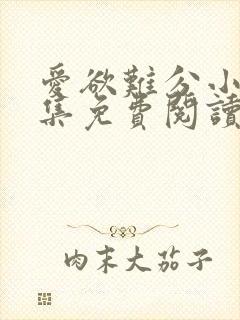 愛欲難分小
集免費閱讀
肉末大茄子